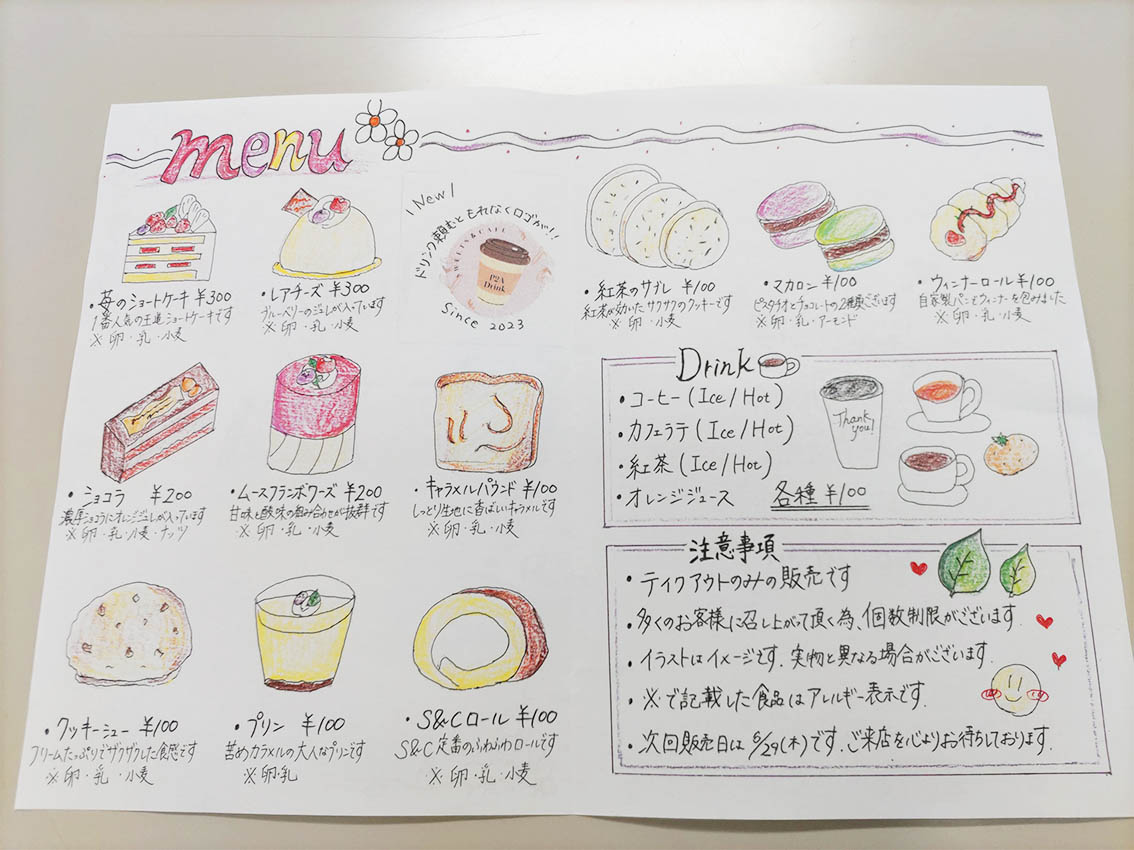 menu
・苺のショートケーキ ¥300
1番人気の王道ショートケーキです
※卵・乳・小麦
・レアチーズ ¥300
ブルーベリーのジュレが入っています
※卵・乳・小麦
\ New /
ドリンク頼むともれなくロゴが!!
SWEETS & CAFE
P2A
Drink
Since 2023
・紅茶のサブレ ¥100
紅茶が効いたサクサクのクッキーです
※卵・小麦
・マカロン ¥100
ピスタチオとチョコレートの2種類ございます
※卵・乳・アーモンド
・ウィンナーロール ¥100
自家製パンでウィンナーを包みました
※卵・乳・小麦
・ショコラ ¥200
濃厚ショコラにオレンジジュレが入っています
※卵・乳・小麦・ナッツ
・ムースフランボワーズ ¥200
甘味と酸味の組み合わせが抜群です
※卵・乳・小麦
・キャラメルパウンド ¥100
しっとり生地に香ばしいキャラメルです
※卵・乳・小麦
Drink
・コーヒー (Ice/Hot)
・カフェラテ (Ice/Hot)
・紅茶 (Ice/Hot)
・オレンジジュース 各種 ¥100
Thank
you!
・クッキーシュー ¥100
クリームたっぷりでザクザクした食感です
※卵・乳・小麦
・プリン ¥100
苦めカラメルの大人なプリンです
※卵・乳
・S&Cロール ¥100
S&C定番のふわふわロールです
※卵・乳・小麦
注意事項
・テイクアウトのみの販売です
・多くのお客様に召し上がって頂く為、個数制限がございます.
・イラストはイメージです. 実物と異なる場合がございます.
・※で記載した食品はアレルギー表示です.
・次回販売日は 6/29(木)です. ご来店を心よりお待ちしております.